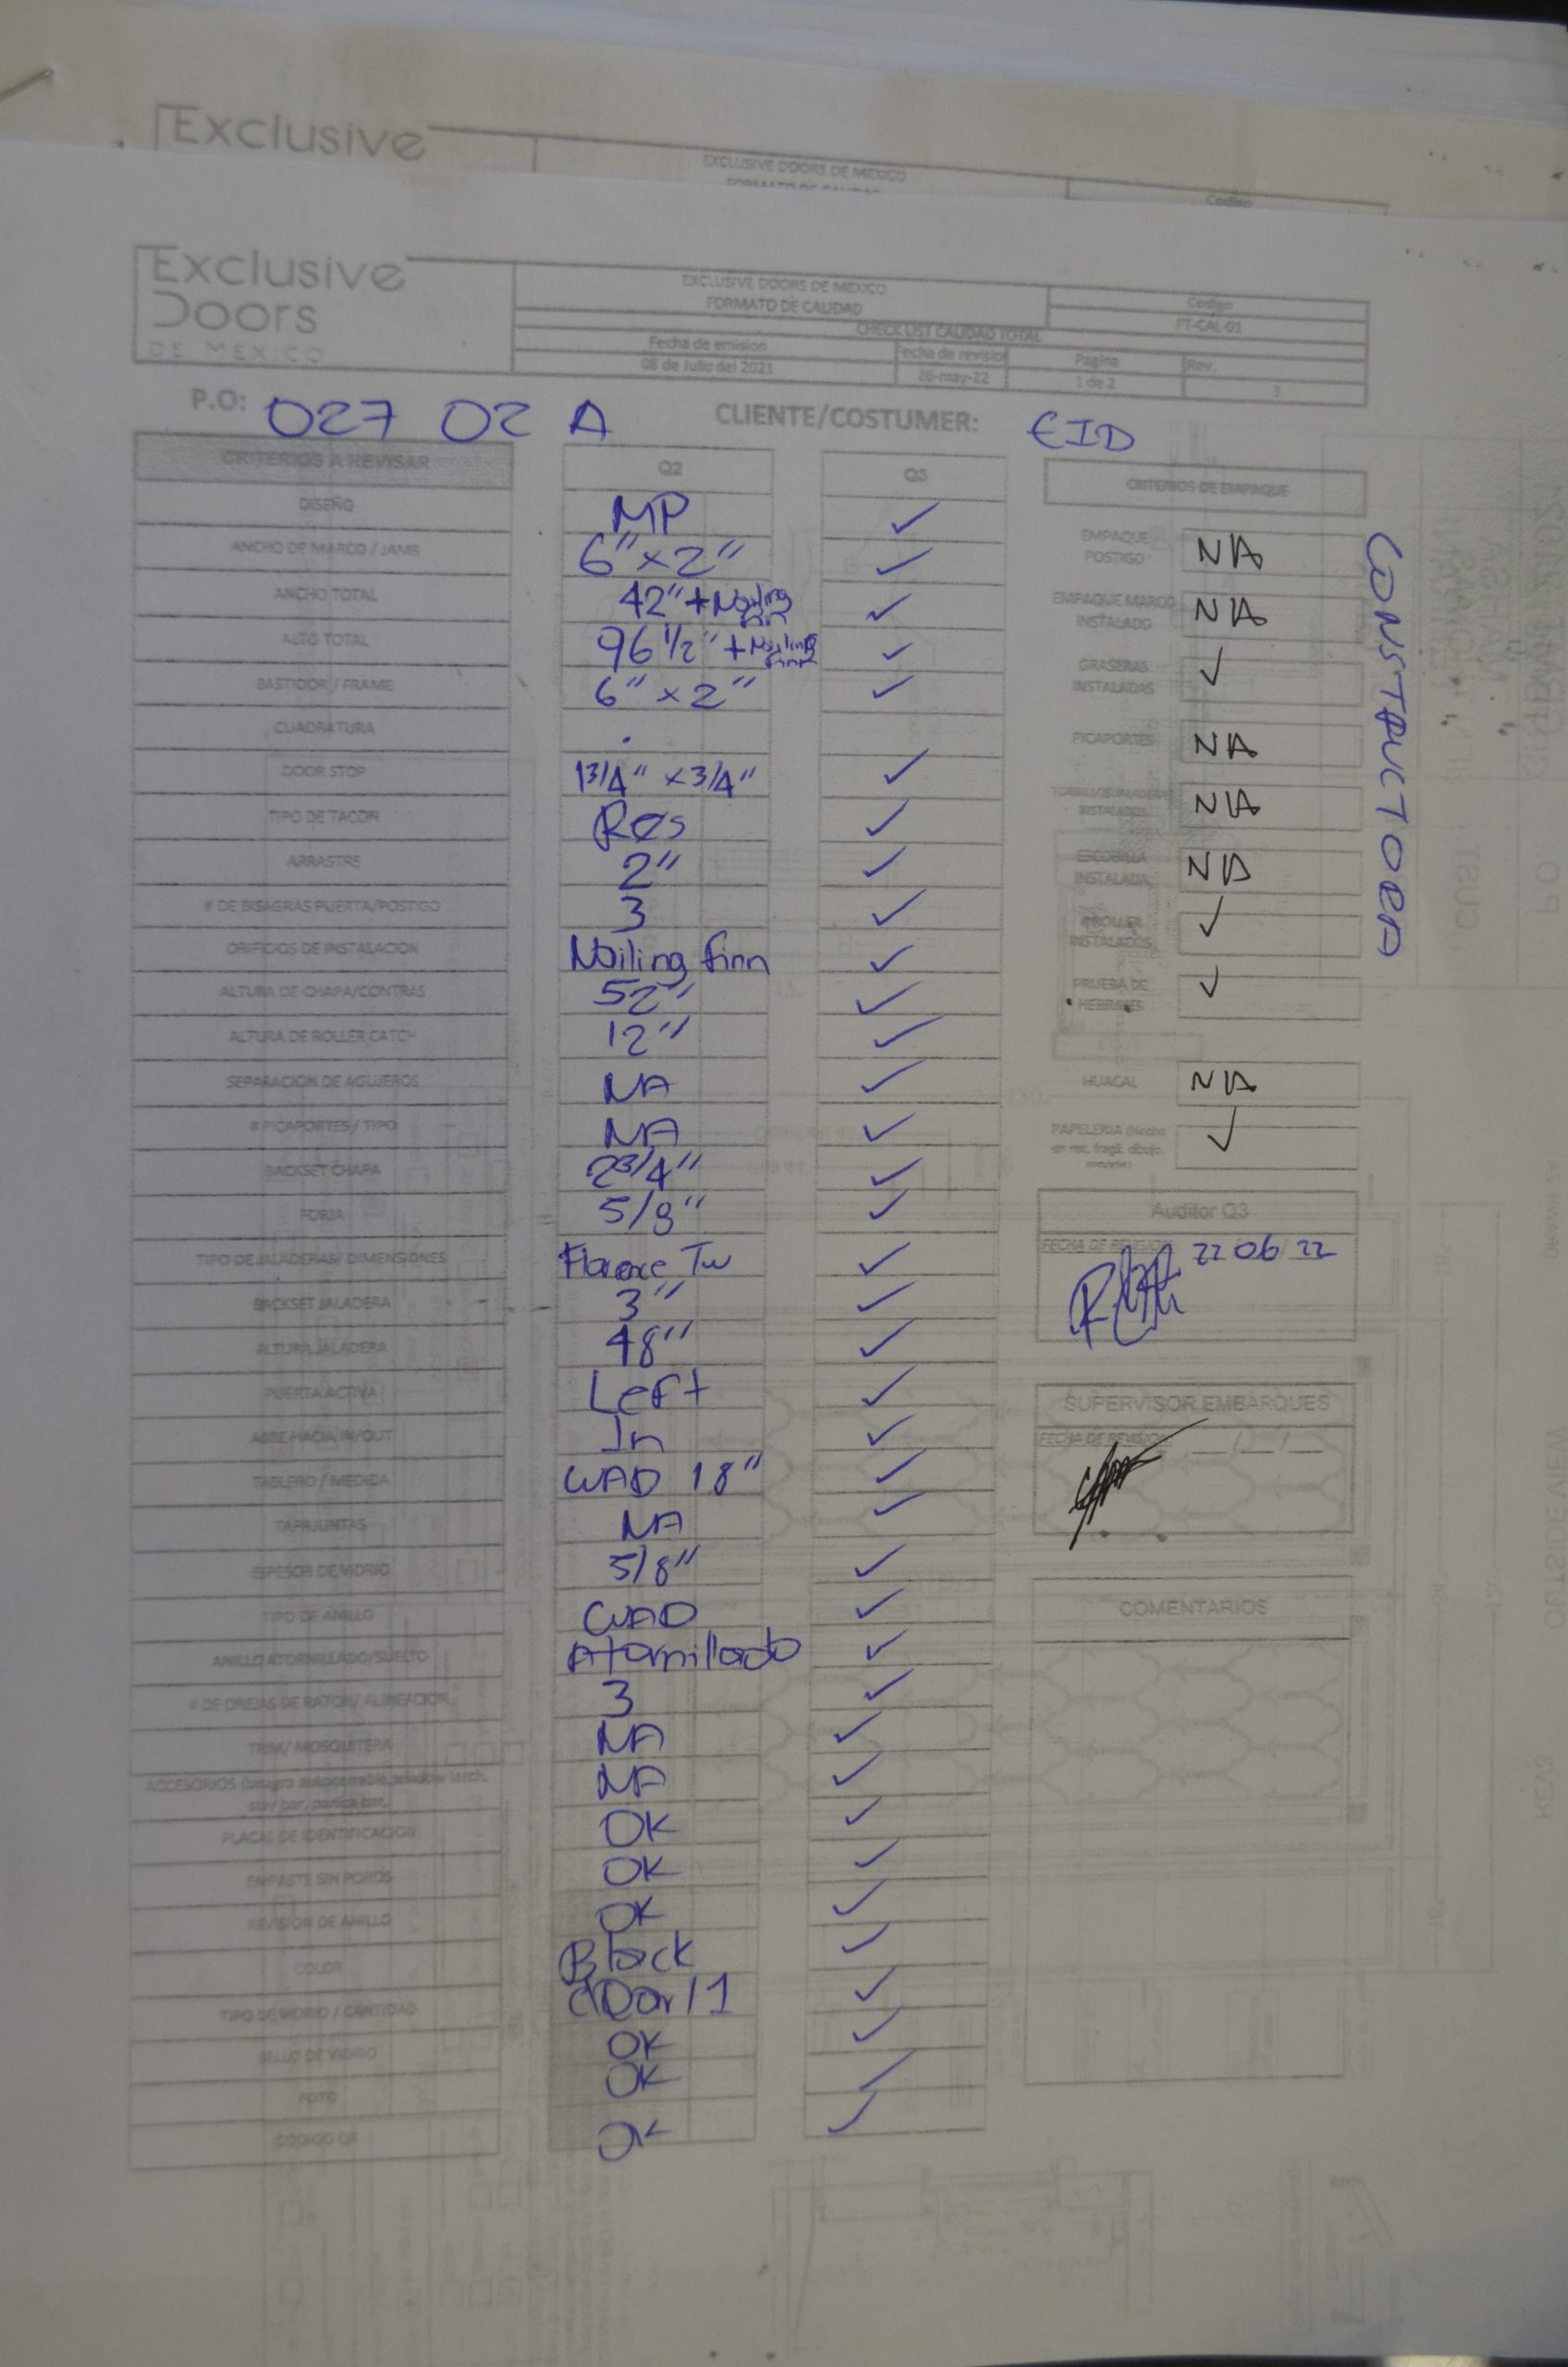 Exclusive
EXCLUSIVE DOORS DE MEXICO
Codigo
Exclusive
Doors
DE MEXICO
EXCLUSIVE DOORS DE MEXICO
FORMATO DE CALIDAD
Codigo
FT-CAL-01
CHECK LIST CALIDAD TOTAL
Fecha de emision
08 de Julio del 2021
Fecha de revision
26-may-22
Pagina
1 de 2
Rev.
3
P.O: 027 02 A CLIENTE/COSTUMER: EID
CRITERIOS A REVISAR Q2 Q3
DISEÑO MP ✓
ANCHO DE MARCO / JAMB 6" x 2" ✓
ANCHO TOTAL 42" + Nailing finn ✓
ALTO TOTAL 96 1/2" + Nailing finn ✓
BASTIDOR / FRAME 6" x 2" ✓
CUADRATURA
DOOR STOP 1 3/4" x 3/4" ✓
TIPO DE TACON Res ✓
ARRASTRE 2" ✓
# DE BISAGRAS PUERTA/POSTIGO 3 ✓
ORIFICIOS DE INSTALACION Nailing finn ✓
ALTURA DE CHAPA/CONTRAS 52" ✓
ALTURA DE ROLLER CATCH 12" ✓
SEPARACION DE AGUJEROS NA ✓
# PICAPORTES / TIPO NA ✓
BACKSET CHAPA 2 3/4" ✓
FORJA 5/8" ✓
TIPO DE JALADERAS/ DIMENSIONES Tw ✓
BACKSET JALADERA 3" ✓
ALTURA JALADERA 48" ✓
PUERTA ACTIVA Left ✓
ABRE HACIA IN/OUT In ✓
TABLERO / MEDIDA CUAD 18" ✓
TAPAJUNTAS NA ✓
ESPESOR DE VIDRIO 5/8" ✓
TIPO DE ANILLO CUAD ✓
ANILLO ATORNILLADO/SUELTO Atornillado ✓
# DE OREJAS DE RATON/ ALINEACION 3 ✓
TRIM/ MOSQUITERA NA ✓
ACCESORIOS (bisagra autocerrable, window latch,
stay bar, panica bar, NA ✓
PLACAS DE IDENTIFICACION OK ✓
EMPASTE SIN POROS OK ✓
REVISION DE ANILLO OK ✓
COLOR Black ✓
TIPO DE VIDRIO / CANTIDAD ✓
SELLO DE VIDRIO OK ✓
FOTO OK ✓
CODIGO QR OK ✓
CRITERIOS DE EMPAQUE
EMPAQUE
POSTIGO NA
EMPAQUE MARCO
INSTALADO NA
GRASERAS
INSTALADAS ✓
PICAPORTES NA
TORNILLOS JALADERAS
INSTALADOS NA
ESCOBILLA
INSTALADA NA
ROLLER
INSTALADOS ✓
PRUEBA DE
HERRAJES ✓
HUACAL NA
PAPELERIA (Hecho
en mx, fragil, dibujo, ✓
CONSTRUCTORA
Auditor Q3
FECHA DE REVISION: 22 06 22
SUPERVISOR EMBARQUES
FECHA DE REVISION: __/__/__
COMENTARIOS